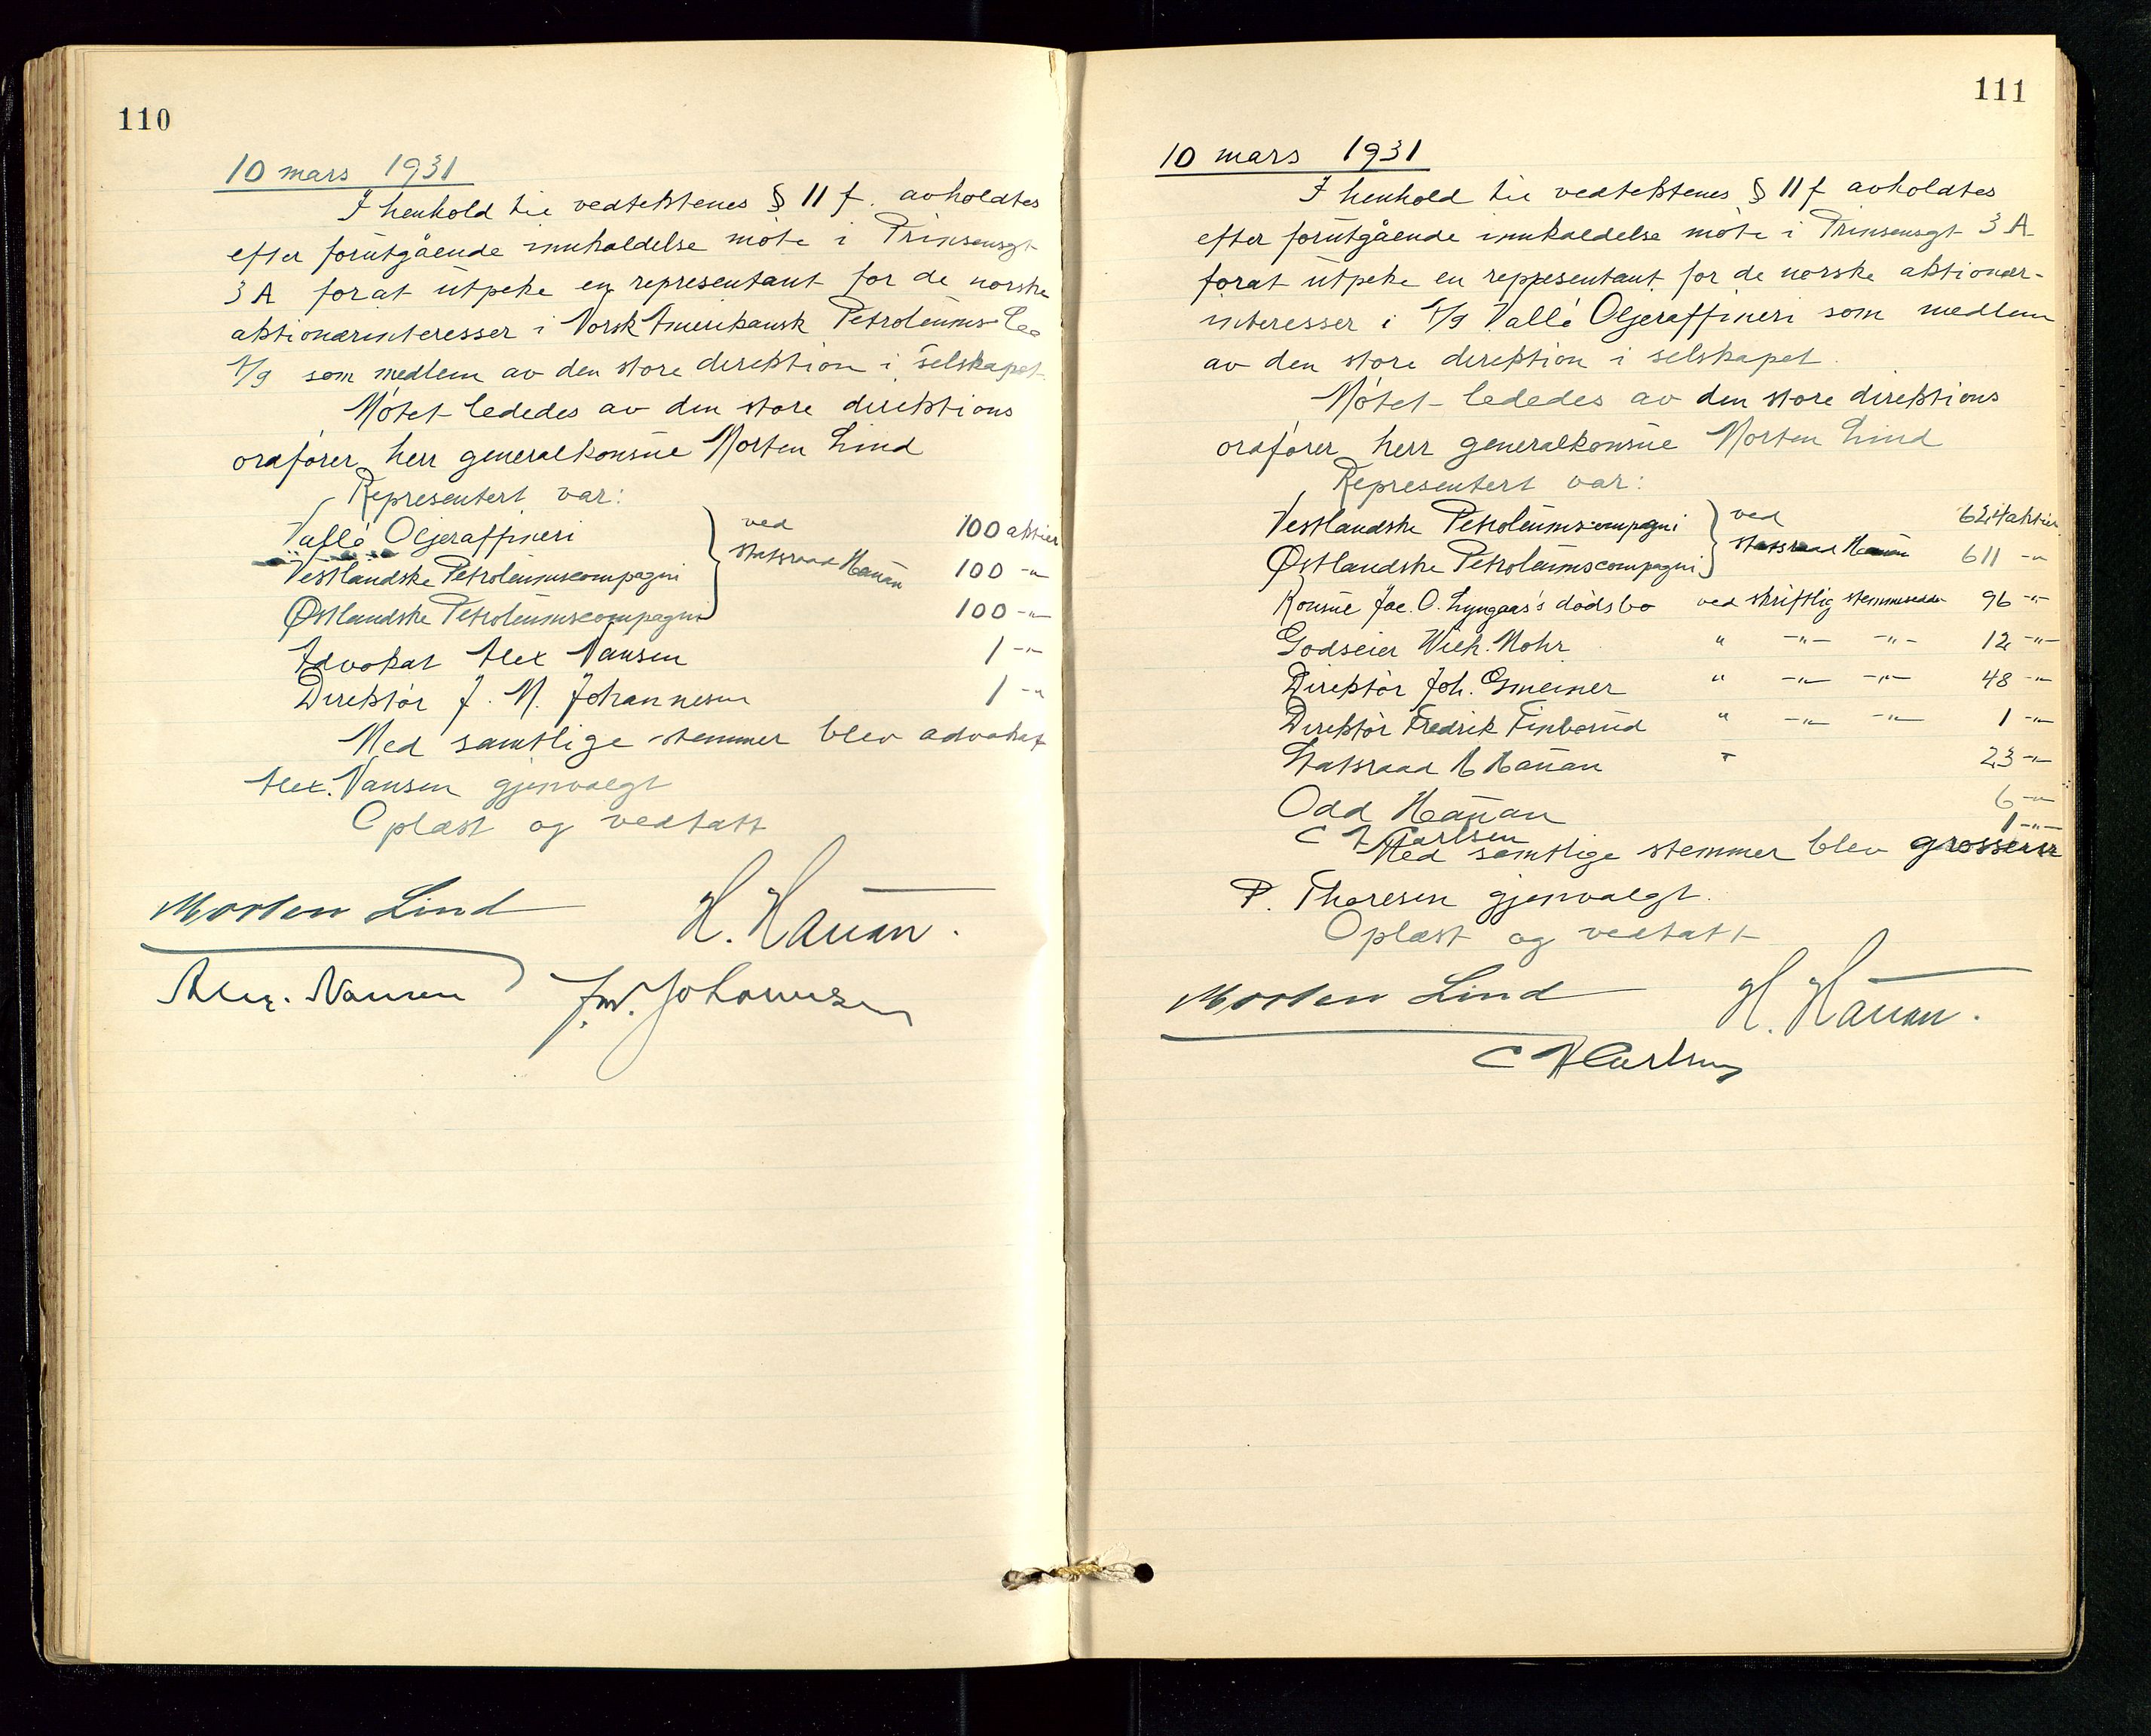 110
10 mars 1931
I henhold til vedtektenes § 11 f. avholdtes
efter forutgående innkaldelse møte i Prinsensgt
3 A forat utpeke en representant for de norske
aktionærinteresser i Norsk Amerikansk Petroleums-Co
A/S som medlem av den store direktion i selskapet.
Møtet lededes av den store direktions
ordfører herr generalkonsul Morten Lind
Representert var:
Vallö Oljeraffineri } ved 100 aktier
Vestlandske Petroleumscompagni statsraad Hauan 100 -"-
Østlandske Petroleumscompagni 100 -"-
Advokat Alex Nansen 1 -"-
Direktør J. M. Johannesen 1 -"-
Med samtlige stemmer blev advokat
Alex. Nansen gjenvalgt
Oplæst og vedtatt
Morten Lind H. Hauan.
Alex. Nansen J.M. Johannesen
111
10 mars 1931
I henhold til vedtektenes § 11 f avholdtes
efter forutgående innkaldelse møte i Prinsensgt 3 A
forat utpeke en representant for de norske aktionær-
interesser i A/S Vallö Oljeraffineri som medlem
av den store direktion i selskapet.
Møtet lededes av den store direktions
ordfører herr generalkonsul Morten Lind
Representert var:
Vestlandske Petroleumscompagni } ved 624 aktier
Østlandske Petroleumscompagni statsraad Hauan 611 -"-
Konsul Joc. O. Lyngaas's dødsbo ved skriftlig stemmeseddel 96 -"-
Godseier Wilh. Mohr " -"- -"- 12 -"-
Direktør Joh. Gmeiner " -"- -"- 48 -"-
Direktør Fredrik Finborud " -"- -"- 1 -"-
Statsraad H Hauan " 23 -"-
Odd Hauan 6 -"-
C H Carlsen 1 -"-
Med samtlige stemmer blev grosserer
P. Thoresen gjenvalgt.
Oplæst og vedtatt
Morten Lind H. Hauan.
C H Carlsen